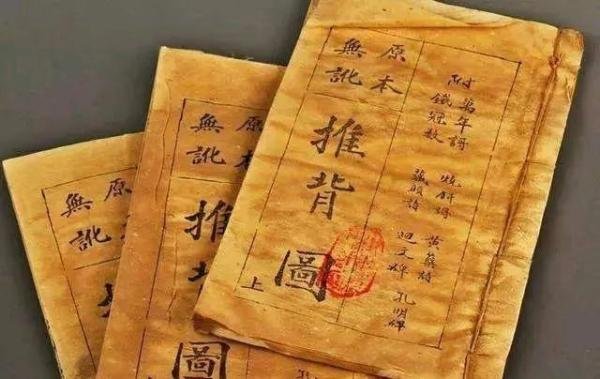 附
萬年歌
鐵冠數
燒餅歌
藏頭詩
黃蘗詩
迴文碑
孔明碑
原本
無訛
推背圖
上
原本
無訛
推背圖
原本
無訛